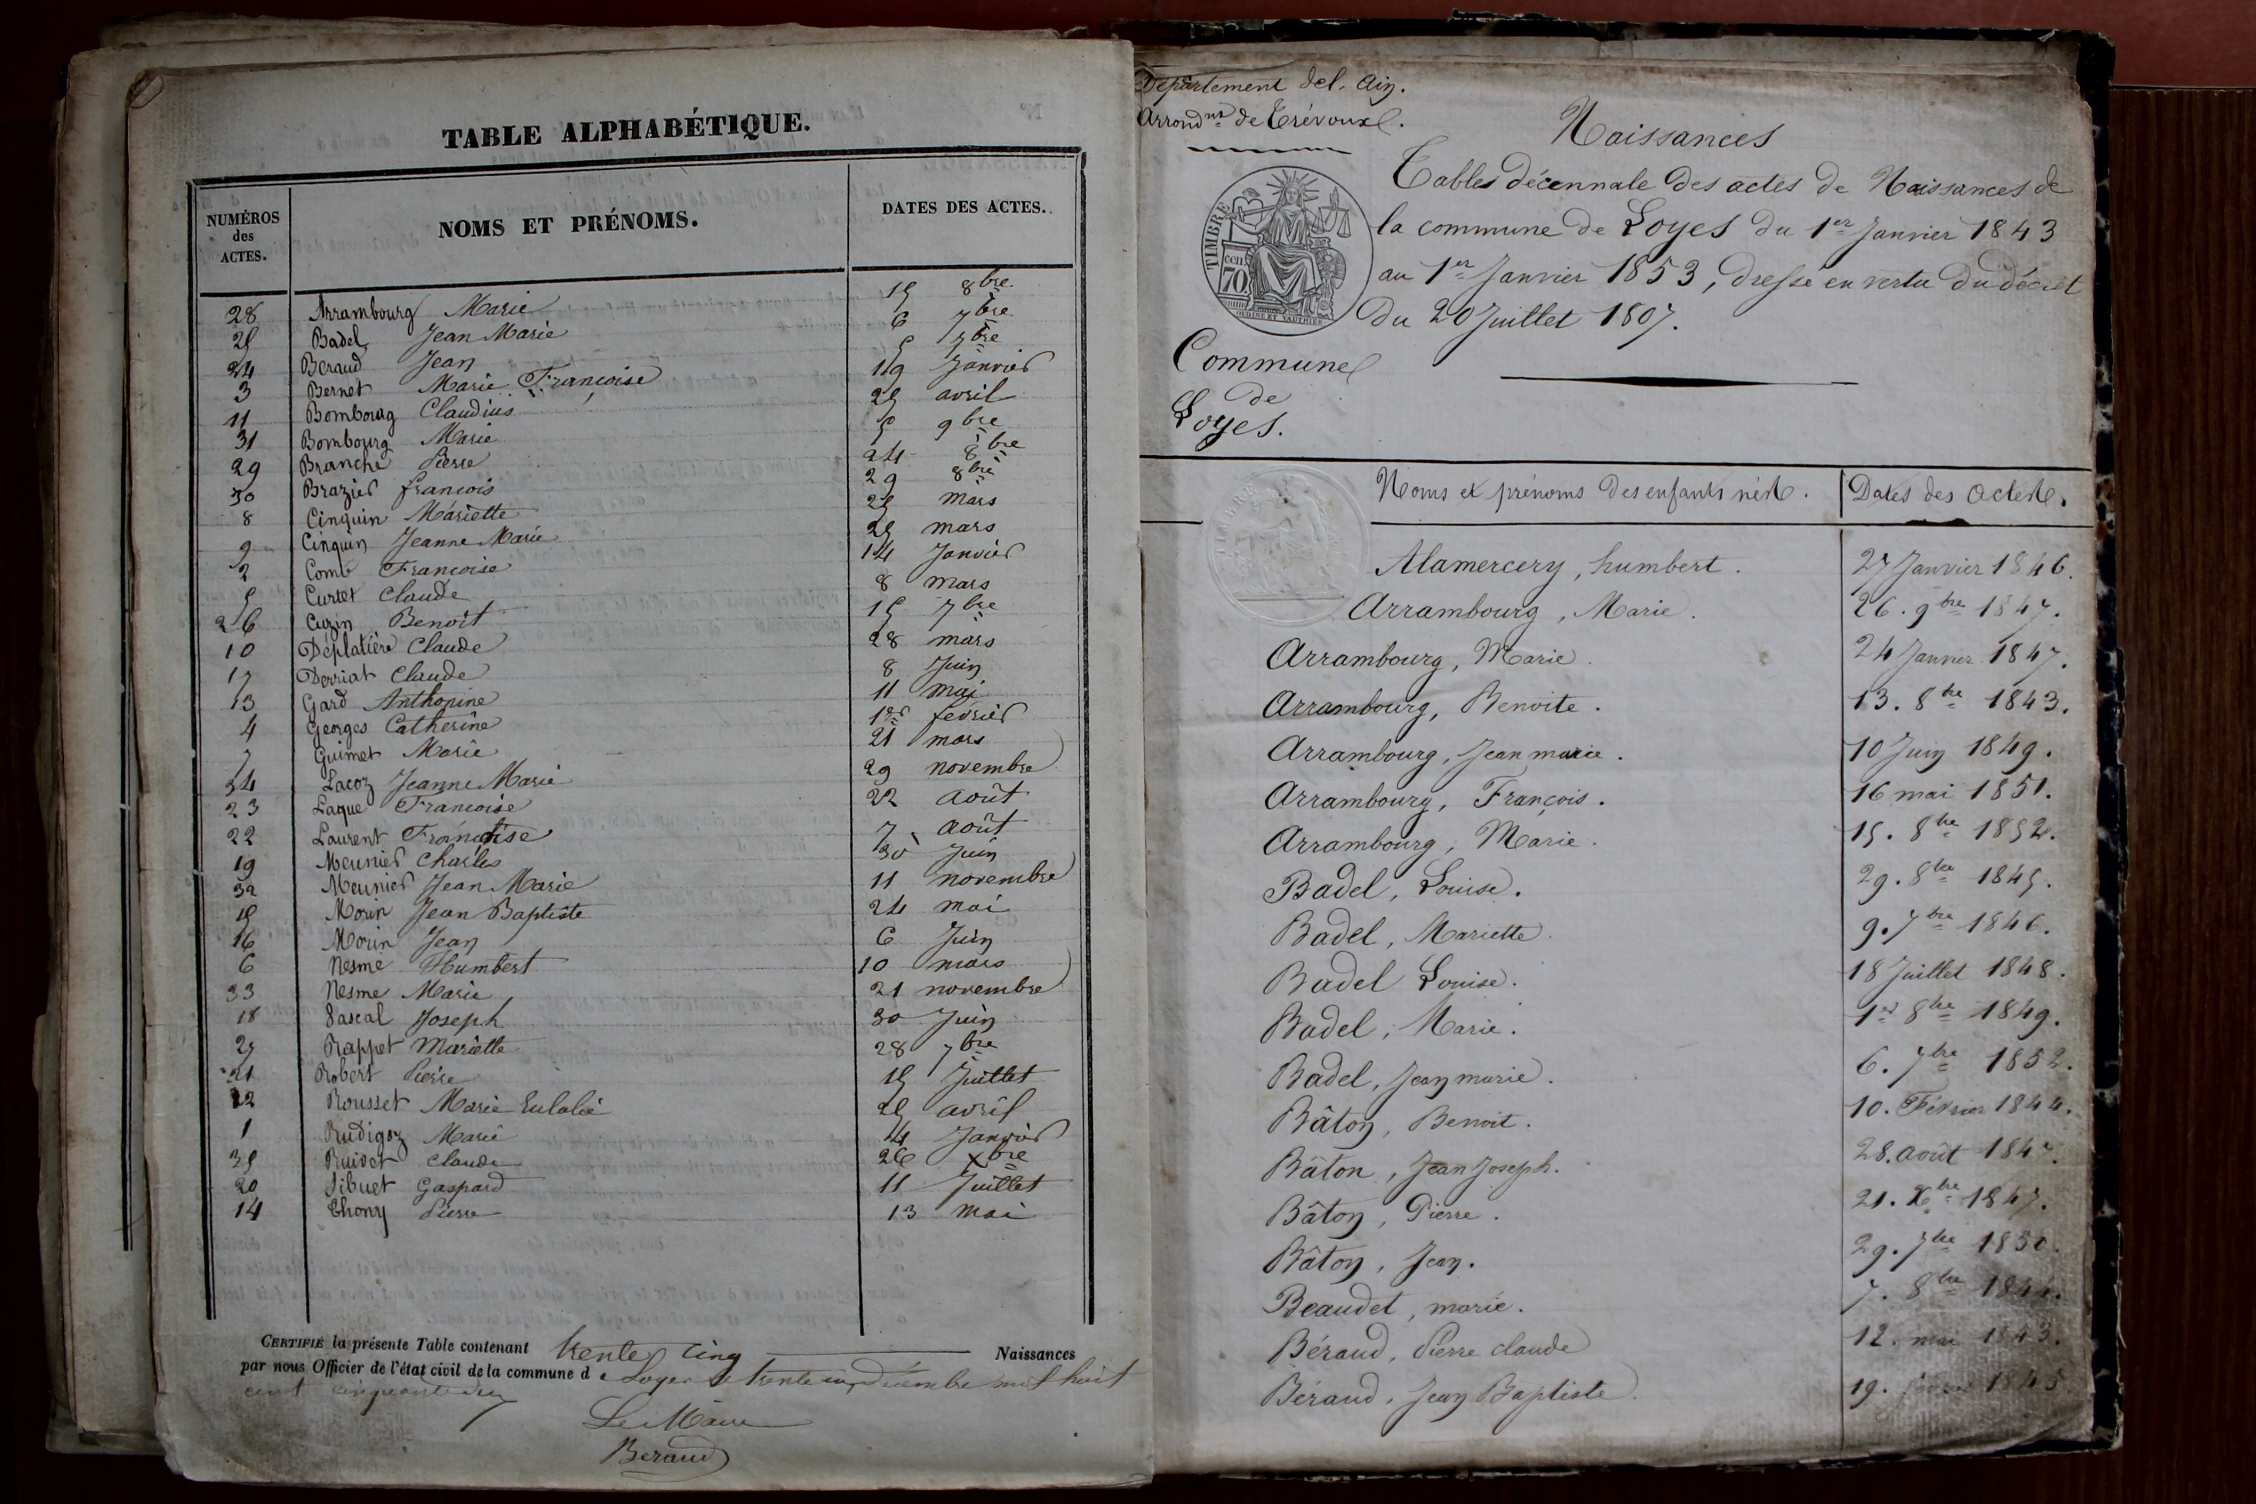 TABLE ALPHABÉTIQUE.
NUMÉROS des ACTES. NOMS ET PRÉNOMS. DATES DES ACTES.
28 Arrambourg Marie 15 8bre
25 Badel Jean Marie 6 7bre
24 Beraud Jean 5 7bre
3 Bernet Marie Françoise 19 Janvier
11 Bombourg Claudius 25 avril
31 Bombourg Marie 5 9bre
29 Branche Pierre 24 8bre
30 Brazier françois 29 8bre
8 Cinquin Mariette 25 mars
9 Cinquin Jeanne Marie 25 mars
2 Come Francoise 14 Janvier
5 Curtet Claude 8 mars
26 Cuzin Benoît 15 7bre
10 Déplatière Claude 28 mars
17 Derriat Claude 8 Juin
13 Gard Anthonine 11 mai
4 Georges Catherine 1er février
7 Guimet Marie 21 mars
34 Lacoz Jeanne Marie 29 novembre
23 Laque Francoise 22 août
22 Laurent Françoise 7 août
19 Meunier Charles 30 Juin
32 Meunier Jean Marie 11 novembre
15 Morin Jean Baptiste 24 mai
16 Morin Jean 6 Juin
6 Nesme Humbert 10 mars
33 Nesme Marie 21 novembre
18 Pascal Joseph 30 Juin
27 Rappet Mariette 28 7bre
21 Robert Pierre 15 Juillet
12 Rousset Marie Eulalie 25 avril
1 Rudigoz Marie 4 Janvier
35 Ruivet Claude 26 Xbre
20 Sibuet Gaspard 11 Juillet
14 Thony Pierre 13 mai
CERTIFIÉ la présente Table contenant trente cinq Naissances
par nous Officier de l'état civil de la commune d e Loyes le trente un Décembre mil huit
cent cinquante deux
Le Maire
Beraud
Département de l'Ain.
Arrondnt de Trévoux.
Naissances
Tables décennale des actes de Naissances de
la commune de Loyes du 1er Janvier 1843
au 1er Janvier 1853, dressé en vertu du décret
du 20 Juillet 1807.
TIMBRE
70
Commune
de
Loyes.
Noms et prénoms des enfants nés. Dates des Actes.
Alamercery, humbert. 27 Janvier 1846.
Arrambourg, Marie. 26. 9bre 1847.
Arrambourg, Marie. 24 Janvier 1847.
Arrambourg, Benoite. 13. 8bre 1843.
Arrambourg, Jean marie. 10 Juin 1849.
Arrambourg, François. 16 mai 1851.
Arrambourg, Marie. 15. 8bre 1852.
Badel, Louise. 29. 8bre 1845.
Badel, Mariette. 9. 7bre 1846.
Badel Louise. 18 Juillet 1848.
Badel, Marie. 1er 8bre 1849.
Badel, Jean marie. 6. 7bre 1852.
Bâton, Benoit. 10. Février 1844.
Bâton, Jean Joseph. 28. août 1847.
Bâton, Pierre. 21. Xbre 1847.
Bâton, Jean. 29. 7bre 1850.
Beaudet, marie. 7. 8bre 1844.
Béraud, Pierre claude 12. mai 1843.
Béraud, Jean Baptiste. 19. 1845